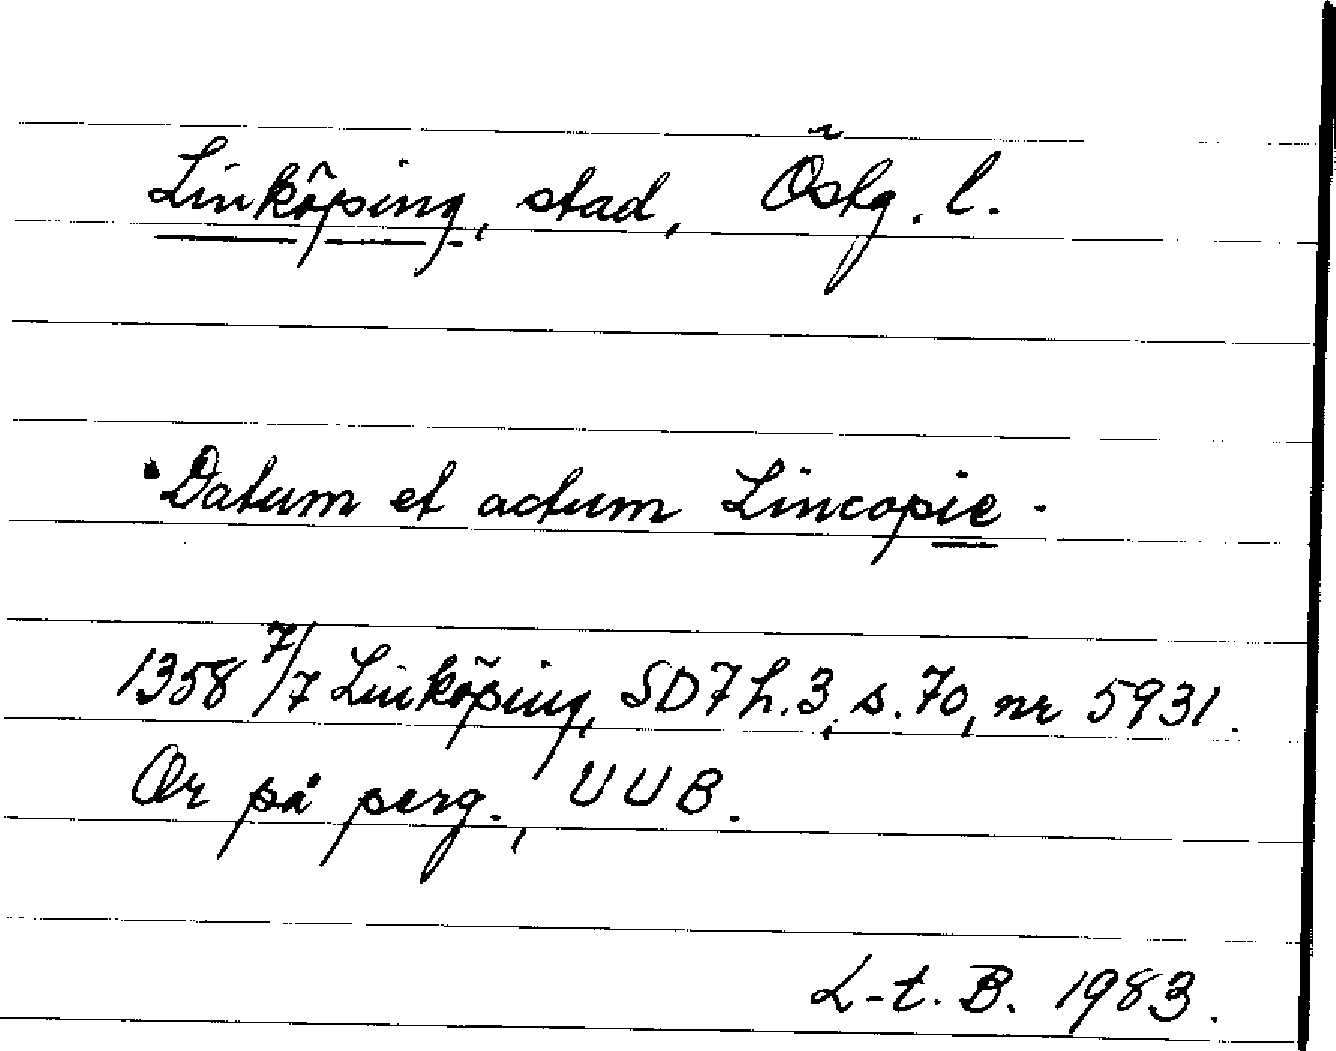 Linköping, stad, Östg. l.
Datum et actum Lincopie.
1358 7/7 Linköping, SD7 h.3, s.70, nr 5931.
Or på perg., UUB.
L-t. B. 1983.